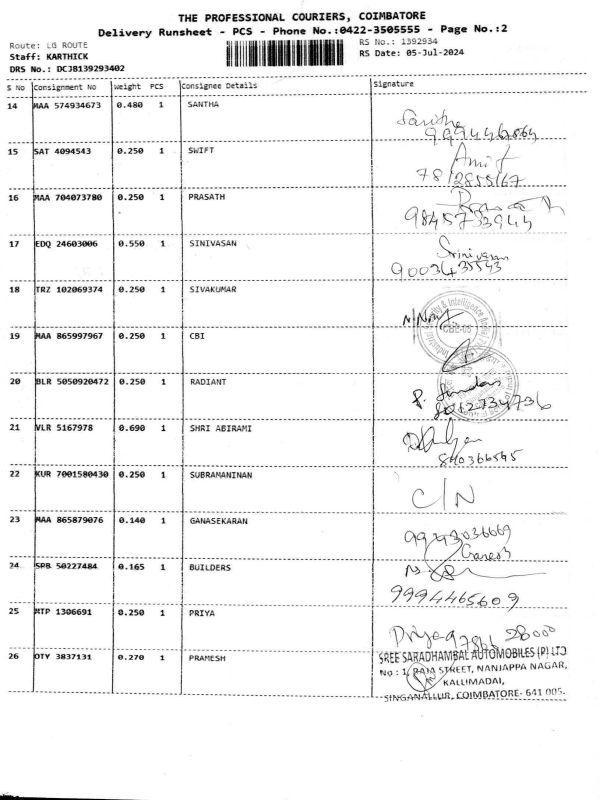 THE PROFESSIONAL COURIERS, COIMBATORE
Delivery Runsheet - PCS - Phone No.:0422-3505555 - Page No.:2
Route: LG ROUTE
Staff: KARTHICK
DRS No.: DCJ8139293402
RS No.: 1392934
RS Date: 05-Jul-2024
S No Consignment No Weight PCS Consignee Details Signature
14 MAA 574934673 0.480 1 SANTHA
15 SAT 4094543 0.250 1 SWIFT Amit
16 MAA 704073780 0.250 1 PRASATH
9845733944
17 EDQ 24603006 0.550 1 SINIVASAN Srinivasan
18 TRZ 102069374 0.250 1 SIVAKUMAR
19 MAA 865997967 0.250 1 CBI
20 BLR 5050920472 0.250 1 RADIANT
21 VLR 5167978 0.690 1 SHRI ABIRAMI
22 KUR 7001580430 0.250 1 SUBRAMANINAN
C/N
23 MAA 865879076 0.140 1 GANASEKARAN
Ganesh
24 SPB 50227484 0.165 1 BUILDERS
9994465609
25 MTP 1306691 0.250 1 PRIYA
Priya 97866 28000
26 OTY 3837131 0.270 1 PRAMESH
SREE SARADHAMBAL AUTOMOBILES (P) LTD
No : 1, RAJA STREET, NANJAPPA NAGAR,
KALLIMADAI,
SINGANALLUR, COIMBATORE- 641 005.